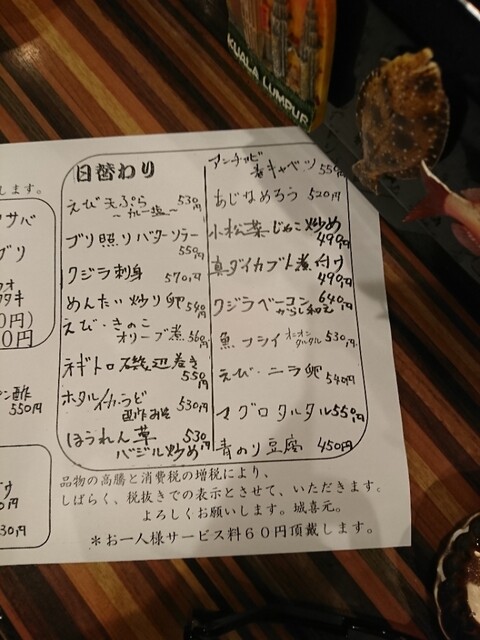 KUALA LUMPUR
します。
サバ
ブリ
タキ
0円)
0円
ン酢
550円
0円
30円
日替わり
えび天ぷら
~カレー塩~ 530円
ブリ照りバターソテー
550円
クジラ刺身 570円
めんたい炒り卵 540円
えび・きのこ
オリーブ煮 560円
ネギトロ磯辺巻き
550円
ホタルイカ・うど
530円
ほうれん草 530円
バジル炒め
アンチョビ
春キャベツ 550円
あじなめろう 520円
小松菜じゃこ炒め
490円
真ダイカブト煮付け
490円
クジラベーコン 640円
からし和え
魚フライ オニオン
タルタル 530円
えび・ニラ卵
540円
マグロタルタル 550円
青のり豆腐 450円
品物の高騰と消費税の増税により、
しばらく、税抜きでの表示とさせて、いただきます。
よろしくお願いします。城喜元。
*お一人様サービス料60円頂戴します。